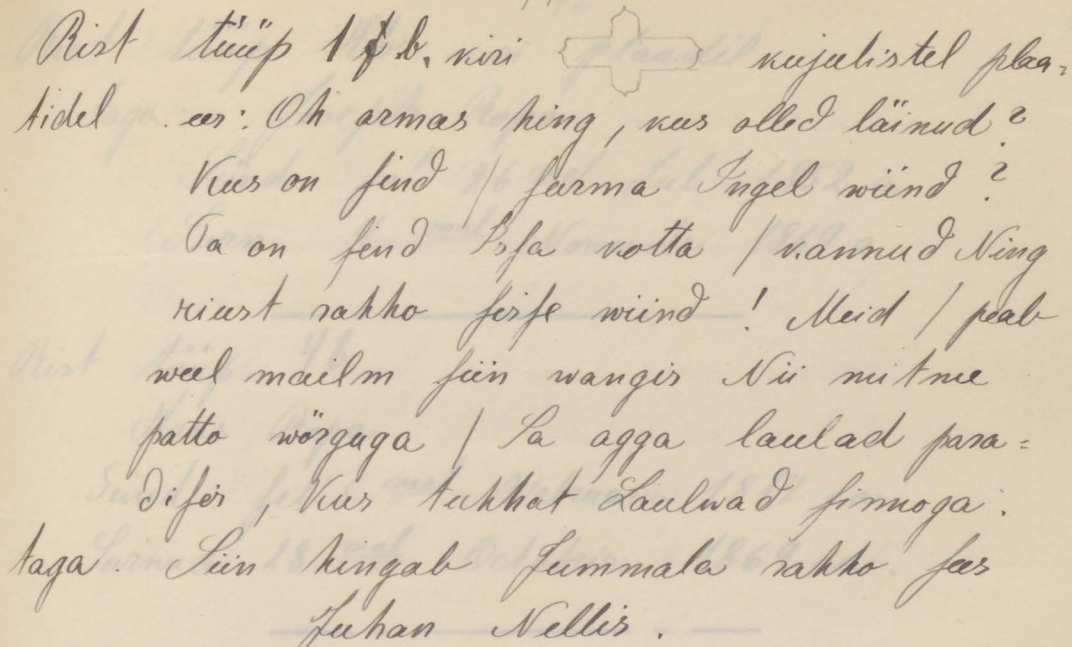 Rist tüüp 1 b. kiri kujulistel plaa=
tidel ees: Oh armas hing, kus olled läinud?
Kus on sind / surma Ingel wiind?
Ta on sind Issa kotta / kannud Ning
riust rahho sisse wiind! Meid / peab
weel mailm siin wangis Nii mitme
patto wörguga / Sa agga laulad para=
disis, Kus tuhhat Laulwad sinnoga.
taga. Siin hingab Jummala rahho sees
Juhan Nellis.